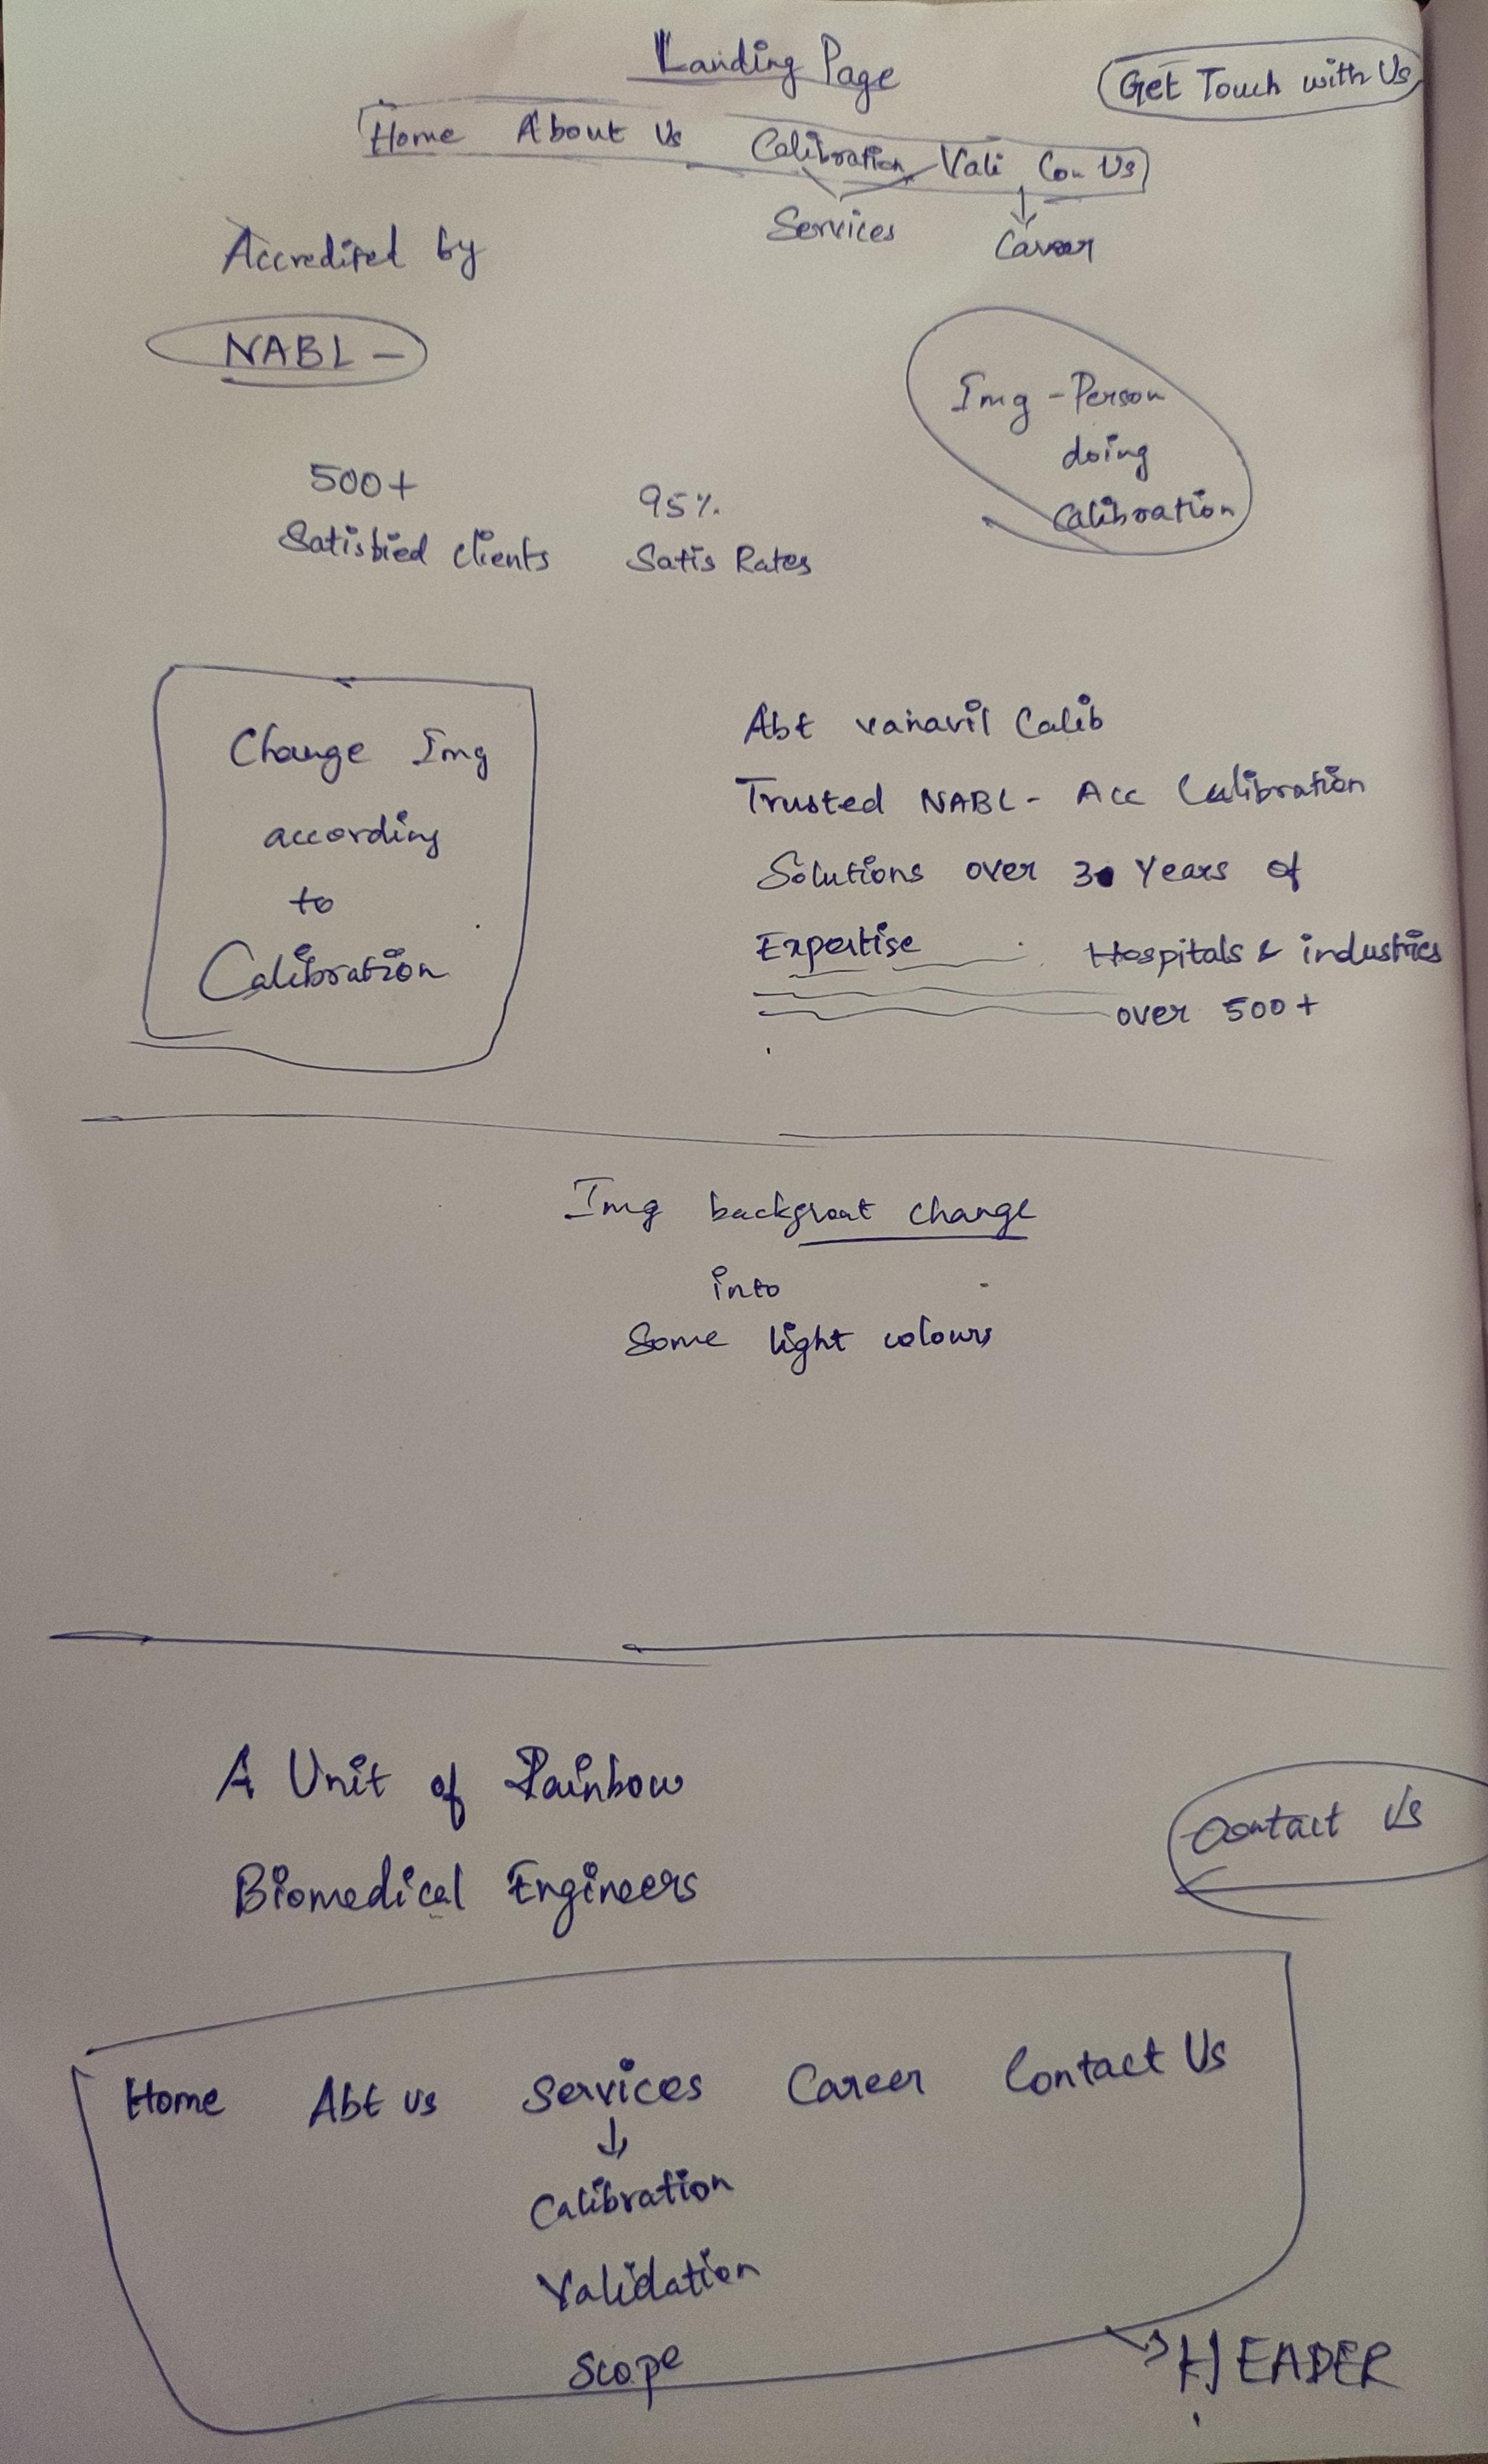 Landing Page
Get Touch with Us
Home About Us Calibration Vali Con Us
Services
Career
Accredited by
NABL -
Img - Person
doing
Calibration
500+
Satisfied clients
95%
Satis Rates
Change Img
according
to
Calibration
Abt vanavil Calib
Trusted NABL - Acc Calibration
Solutions over 30 Years of
Expertise Hospitals & industries
over 500+
Img change
into
Some light colours
A Unit of Rainbow
Biomedical Engineers
Contact Us
Home Abt us Services Career Contact Us
Calibration
Validation
Scope
HEADER